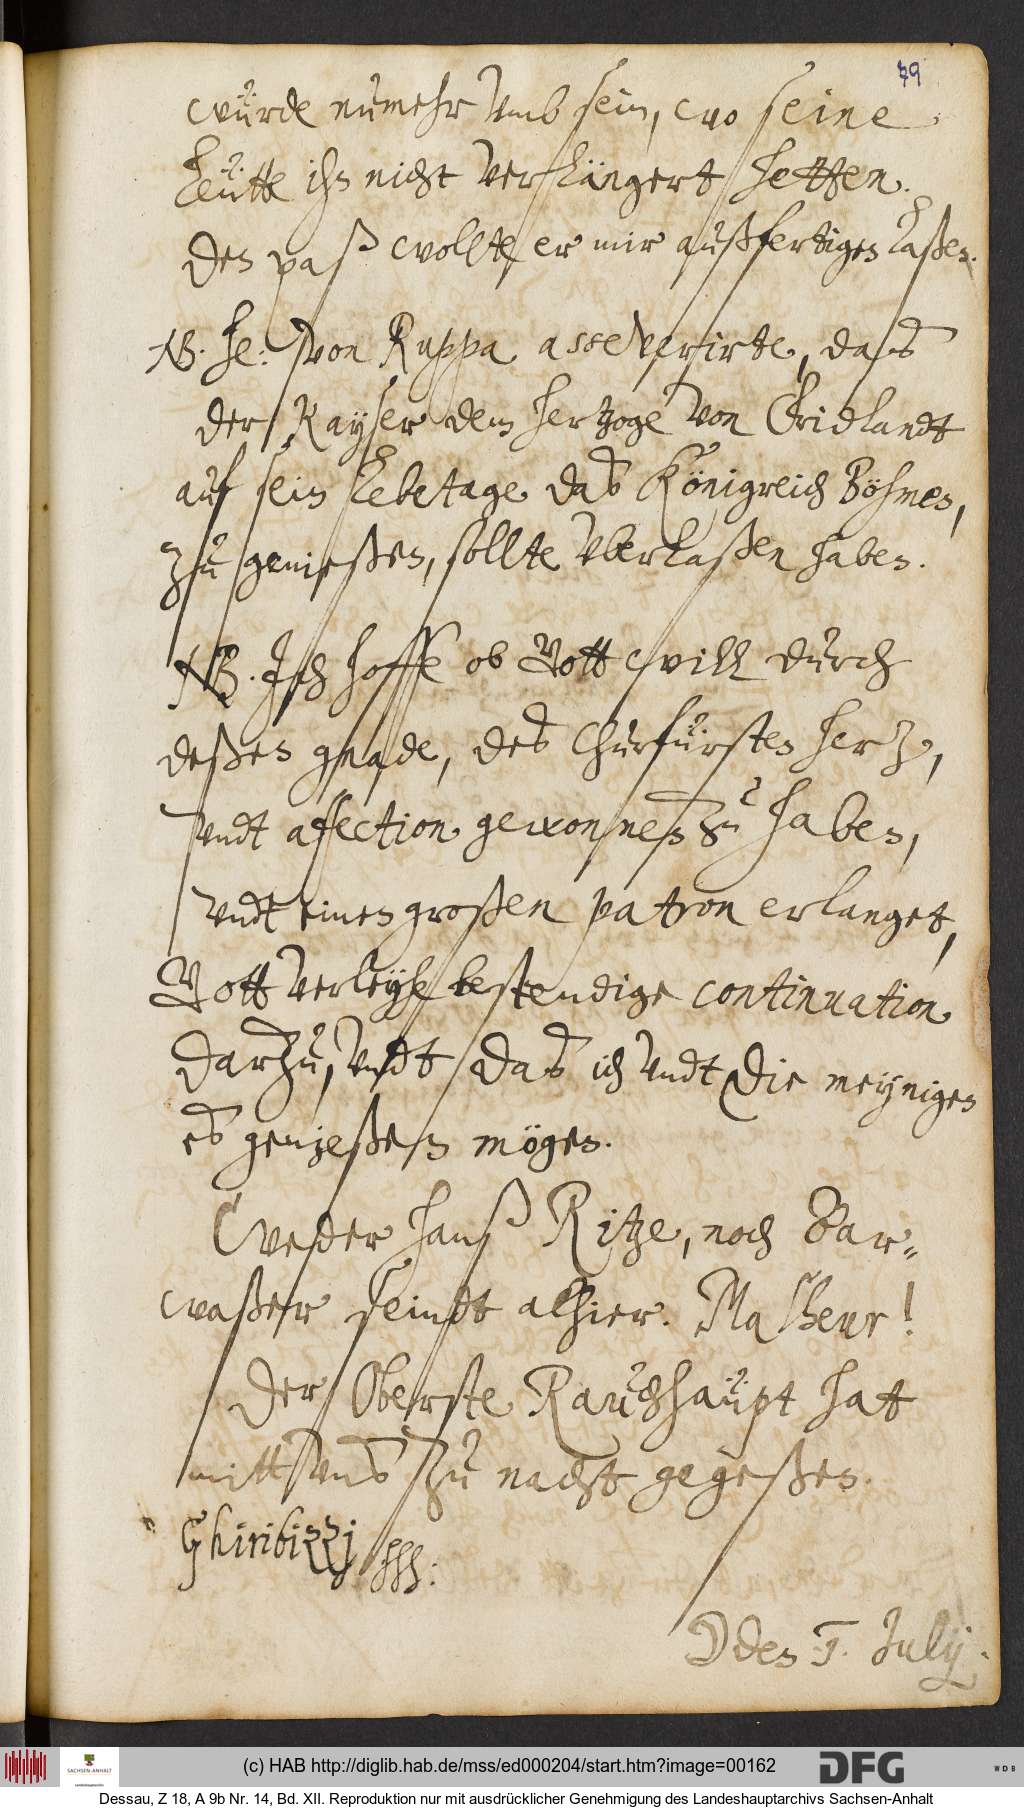 79
würde nůmehr vmb sein, wo seine
Leütte ihn nicht verhindert hetten.
Den paß wollte er mir außfertigen laßen.
NB. he: von Ruppa asseverirte, daß
der Kayser dem hertzoge von Fridlandt
auf sein Lebetage das Königreich Böhmen,
zu genießen, sollte vberlaßen haben.
NB. Jch hoffe ob Gott will durch
deßen gnade, des Churfürsten hertz,
vndt affection gewonnen zu haben,
vndt einen großen patron erlanget,
Gott verleyhe bestendige continuation
darzu, vndt das ich vndt die meynigen
es genießen mögen.
Weder hanß Ritze, noch Bar-
waßer seindt alhier. Malheur!
Der Oberste Rauchhaupt hat
mitt vns zu nacht gegeßen.
Ghiribizzj
den 1. Julij.
(c) HAB http://diglib.hab.de/mss/ed000204/start.htm?image=00162
SACHSEN-ANHALT
DFG
WDB
Dessau, Z 18, A 9b Nr. 14, Bd. XII. Reproduktion nur mit ausdrücklicher Genehmigung des Landeshauptarchivs Sachsen-Anhalt